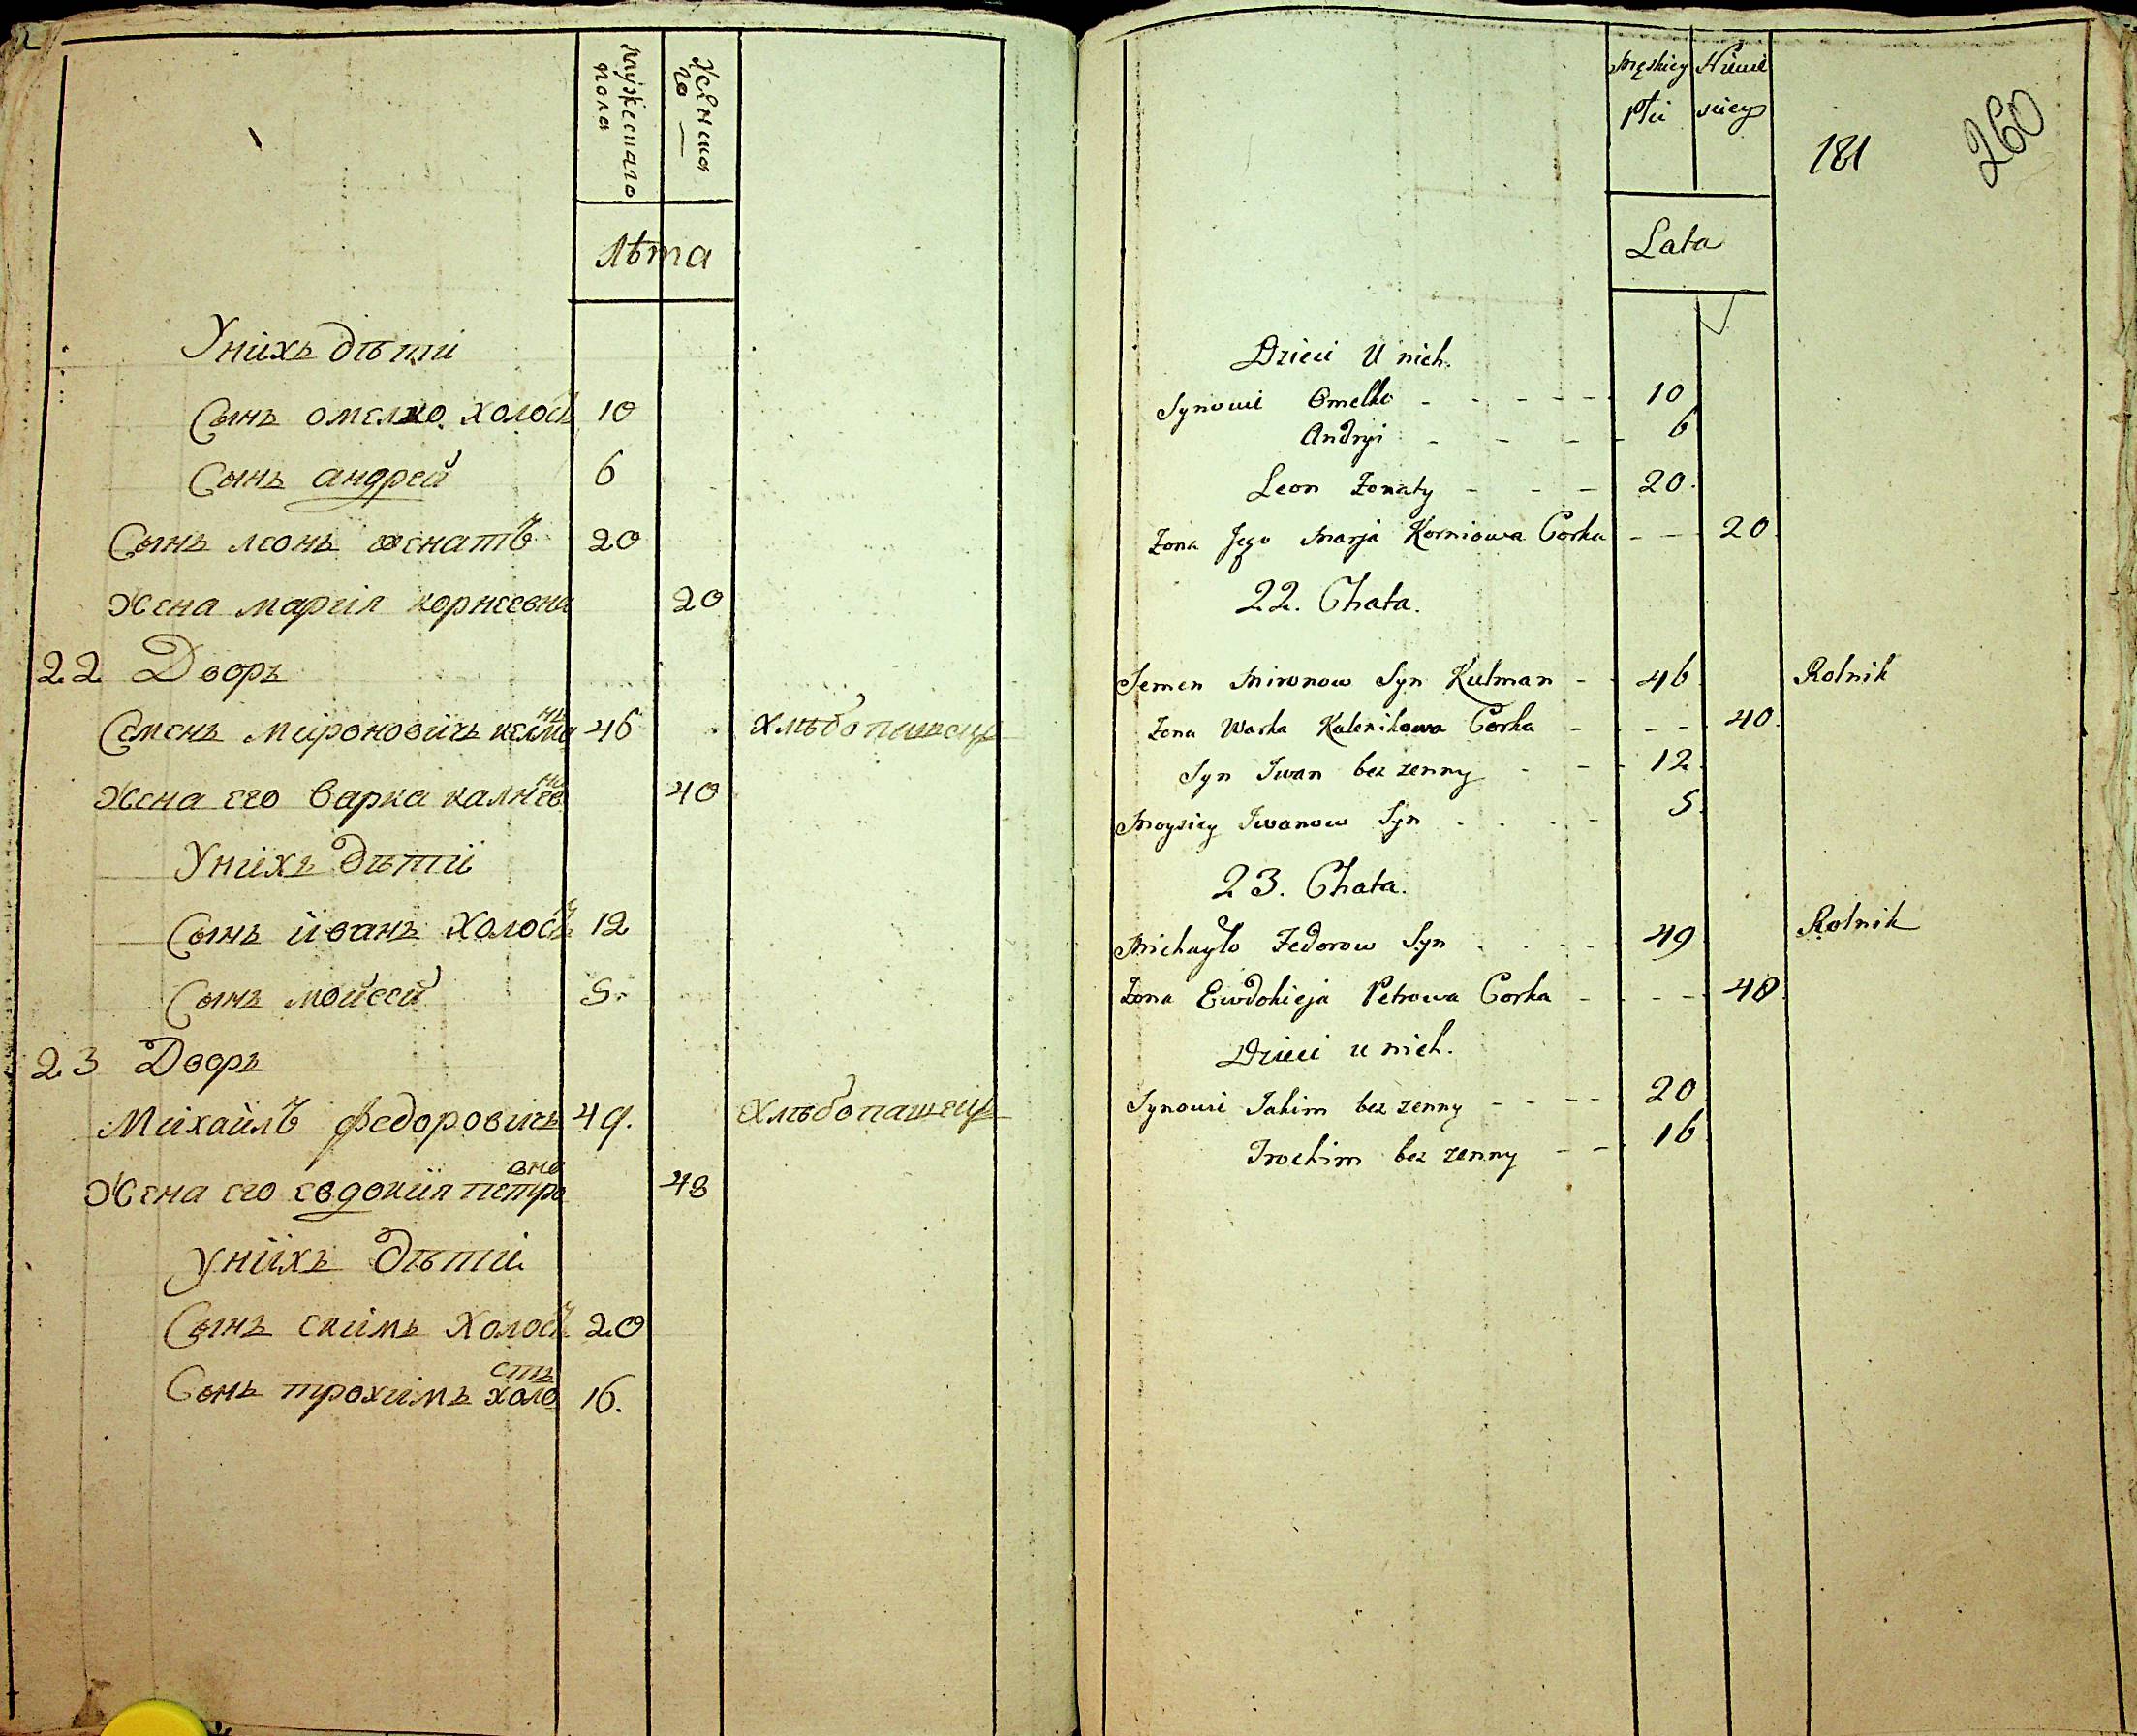 мужескаго пола
женска го —
Лѣта
Унихъ дѣти
Сынъ омелко холостъ 10
Сынъ андрей 6
Сынъ леонъ женатъ 20
Жена марiя корнеевна 20
22 Дворъ
Семенъ мироновичъ 46 хлѣбопашецъ
Жена его варка 40
Унихъ дѣтiи
Сынъ иванъ холостъ 12
Сынъ мойсей 5.
23 Дворъ
Михайлъ федоровичъ 49. хлѣбопашецъ
Жена его евдокия петровна 48
унихъ дѣтiи
Сынъ екимъ холостъ 20
Сынъ трохимъ холостъ 16.
Męskiey Płci
181
260
Lata
Dzieci U nich.
Synowie Omelko - - - - - - 10
Andryi - - - - 6
Leon Żonaty - - - 20.
Żona Jego Marja Korniowa Corka - - - 20.
22. Chata.
Semen Mironow Syn Kulman - 46 Rolnik
Żona Warka Kalenikowa Corka - - - - 40.
Syn Iwan bez zenny - - - 12.
Moysiey Iwanow Syn - - - - 5.
23. Chata.
Michayło Fedorow Syn - - - - 49 Rolnik
Żona Ewdokieja Petrowa Corka - - - - 48.
Dzieci u nich.
Synowie Jakim bez zenny - - - - 20
Trochim bez zenny - - 16.